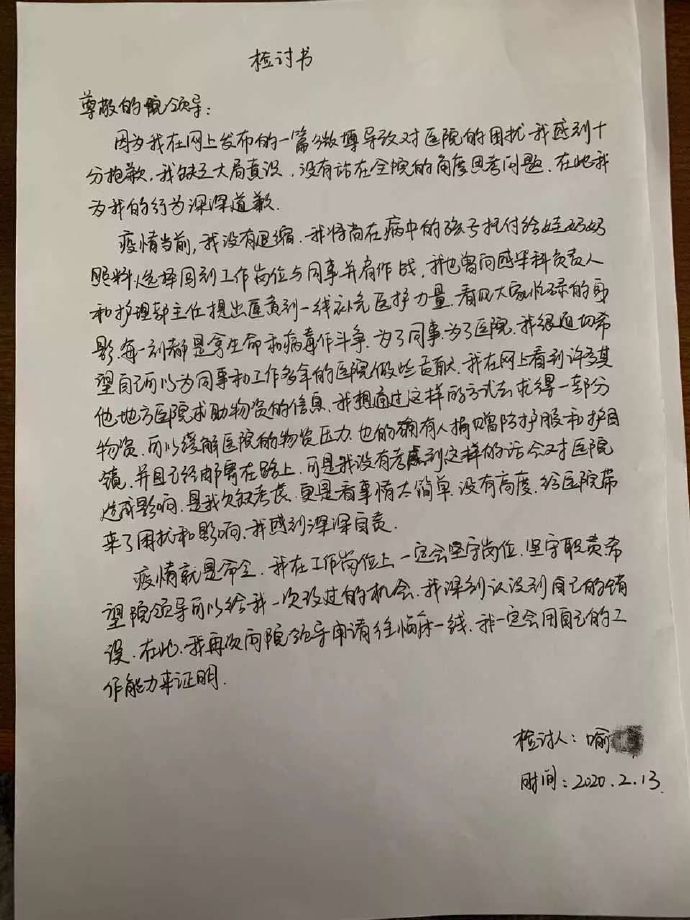 检讨书
尊敬的院领导：
因为我在网上发布的一篇微博导致对医院的困扰.我感到十
分抱歉.我缺乏大局意识，没有站在全院的角度思考问题.在此我
为我的行为深深道歉.
疫情当前，我没有退缩.我将尚在病中的孩子托付给娃奶奶
照料，选择回到工作岗位与同事并肩作战，我也曾向感染科负责人
和护理部主任提出愿意到一线补充医护力量.看见大家忙碌的身
影，每一刻都是拿生命和病毒作斗争.为了同事.为了医院.我很迫切希
望自己可以为同事和工作多年的医院做些贡献.我在网上看到许多其
他地方医院求助物资的信息.我想通过这样的方式去求得一部分
物资.可以缓解医院的物资压力.也的确有人捐赠防护服和护目
镜.并且已经邮寄在路上.可是我没有考虑到这样的话会对医院
造成影响.是我欠缺考虑.更是看事情太简单.没有高度.给医院带
来了困扰和影响.我感到深深自责.
疫情就是命令.我在工作岗位上一定会坚守岗位.坚守职责希
望院领导可以给我一次改过的机会.我深刻认识到自己的错
误.在此.我再次向院领导申请往临床一线.我一定会用自己的工
作能力来证明.
检讨人：喻
时间：2020.2.13.